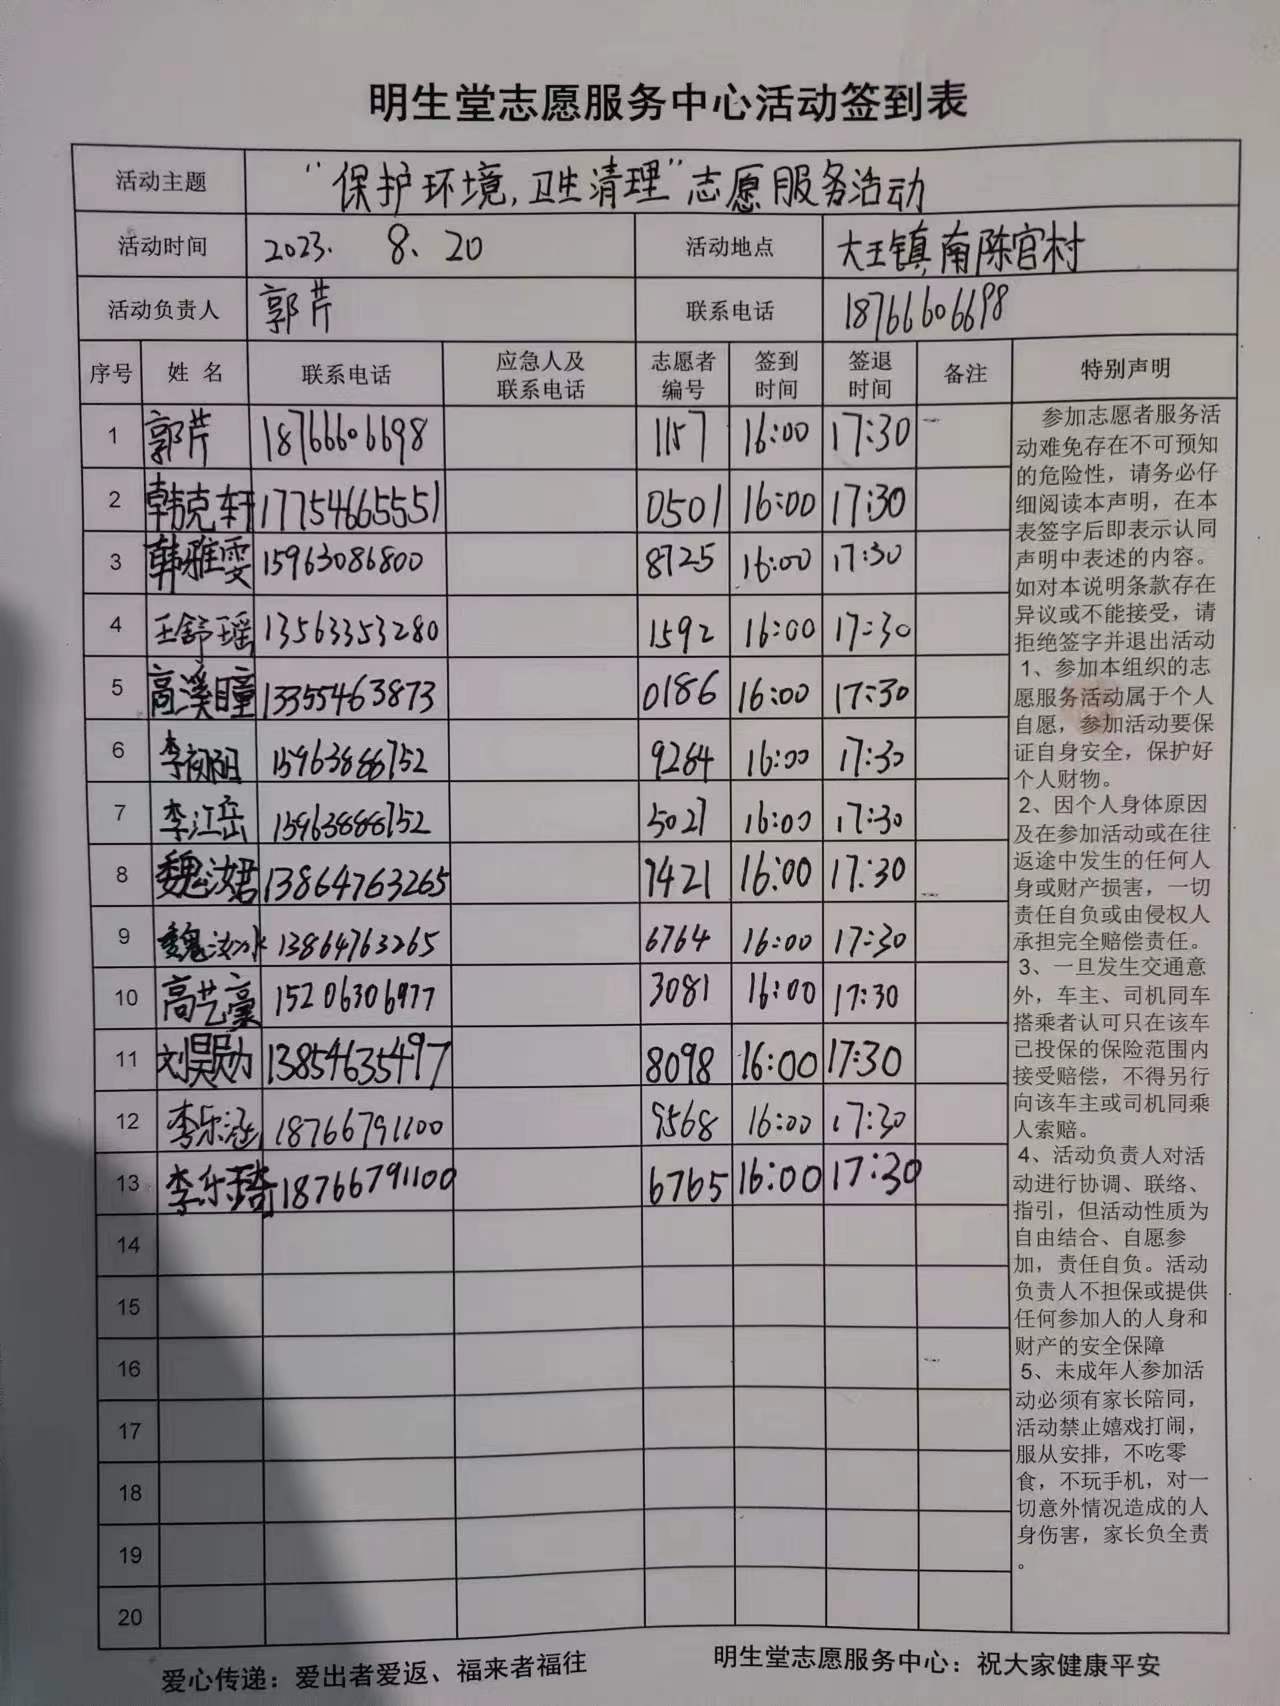 明生堂志愿服务中心活动签到表
活动主题 “保护环境,卫生清理”志愿服务活动
活动时间 2023. 8. 20 活动地点 大王镇南陈官村
活动负责人 郭芹 联系电话 18766606698
序号 姓 名 联系电话 应急人及联系电话 志愿者编号 签到时间 签退时间 备注 特别声明
1 郭芹 18766606698 1157 16:00 17:30
2 韩克轩 17754665551 0501 16:00 17:30
3 韩雅雯 15963086800 8725 16:00 17:30
4 王舒瑶 13563353280 1592 16:00 17:30
5 高溪瞳 13355463873 0186 16:00 17:30
6 李阳 15963888752 9284 16:00 17:30
7 李江岳 15963888752 5027 16:00 17:30
8 魏汝珺 13864763265 7421 16:00 17:30
9 魏汝冰 13864763265 6764 16:00 17:30
10 高艺 15206306977 3081 16:00 17:30
11 刘昊勋 13854635497 8098 16:00 17:30
12 李乐涵 18766791100 9568 16:00 17:30
13 李乐琦 18766791100 6765 16:00 17:30
14
15
16
17
18
19
20
参加志愿者服务活
动难免存在不可预知
的危险性，请务必仔
细阅读本声明，在本
表签字后即表示认同
声明中表述的内容。
如对本说明条款存在
异议或不能接受，请
拒绝签字并退出活动
1、参加本组织的志
愿服务活动属于个人
自愿，参加活动要保
证自身安全，保护好
个人财物。
2、因个人身体原因
及在参加活动或在往
返途中发生的任何人
身或财产损害，一切
责任自负或由侵权人
承担完全赔偿责任。
3、一旦发生交通意
外，车主、司机同车
搭乘者认可只在该车
已投保的保险范围内
接受赔偿，不得另行
向该车主或司机同乘
人索赔。
4、活动负责人对活
动进行协调、联络、
指引，但活动性质为
自由结合、自愿参
加，责任自负。活动
负责人不担保或提供
任何参加人的人身和
财产的安全保障
5、未成年人参加活
动必须有家长陪同，
活动禁止嬉戏打闹，
服从安排，不吃零
食，不玩手机，对一
切意外情况造成的人
身伤害，家长负全责
。
爱心传递：爱出者爱返、福来者福往 明生堂志愿服务中心：祝大家健康平安